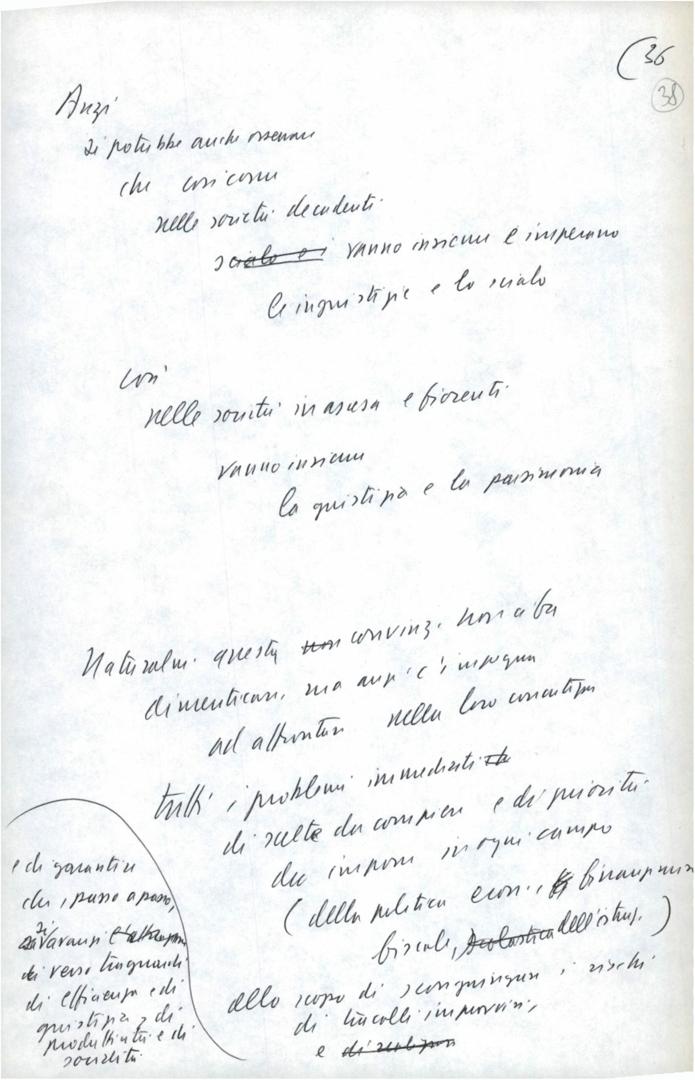 (36
38
Anzi
si potrebbe anche osservare
che così come
nelle società decadenti
scialo e i vanno insieme e imperano
le ingiustizie e lo scialo
così
nelle società in ascesa e fiorenti
vanno insieme
la giustizia e la parsimonia
Naturalm. questa non convinz. non ci fa
dimenticare, ma anzi c'impegna
ad affrontare nella loro concretezza
tutti i problemi immediati
di scelte da compiere e di priorità
da imporre in ogni campo
(della politica econ., finanziaria
fiscale, scolastica dell'istruz.)
allo scopo di scongiurare i rischi
di tracolli improvvisi,
e
e di garantire
che, passo a passo,
si avanzi
verso traguardi
di efficienza e di
giustizia, di
produttività e di
socialità